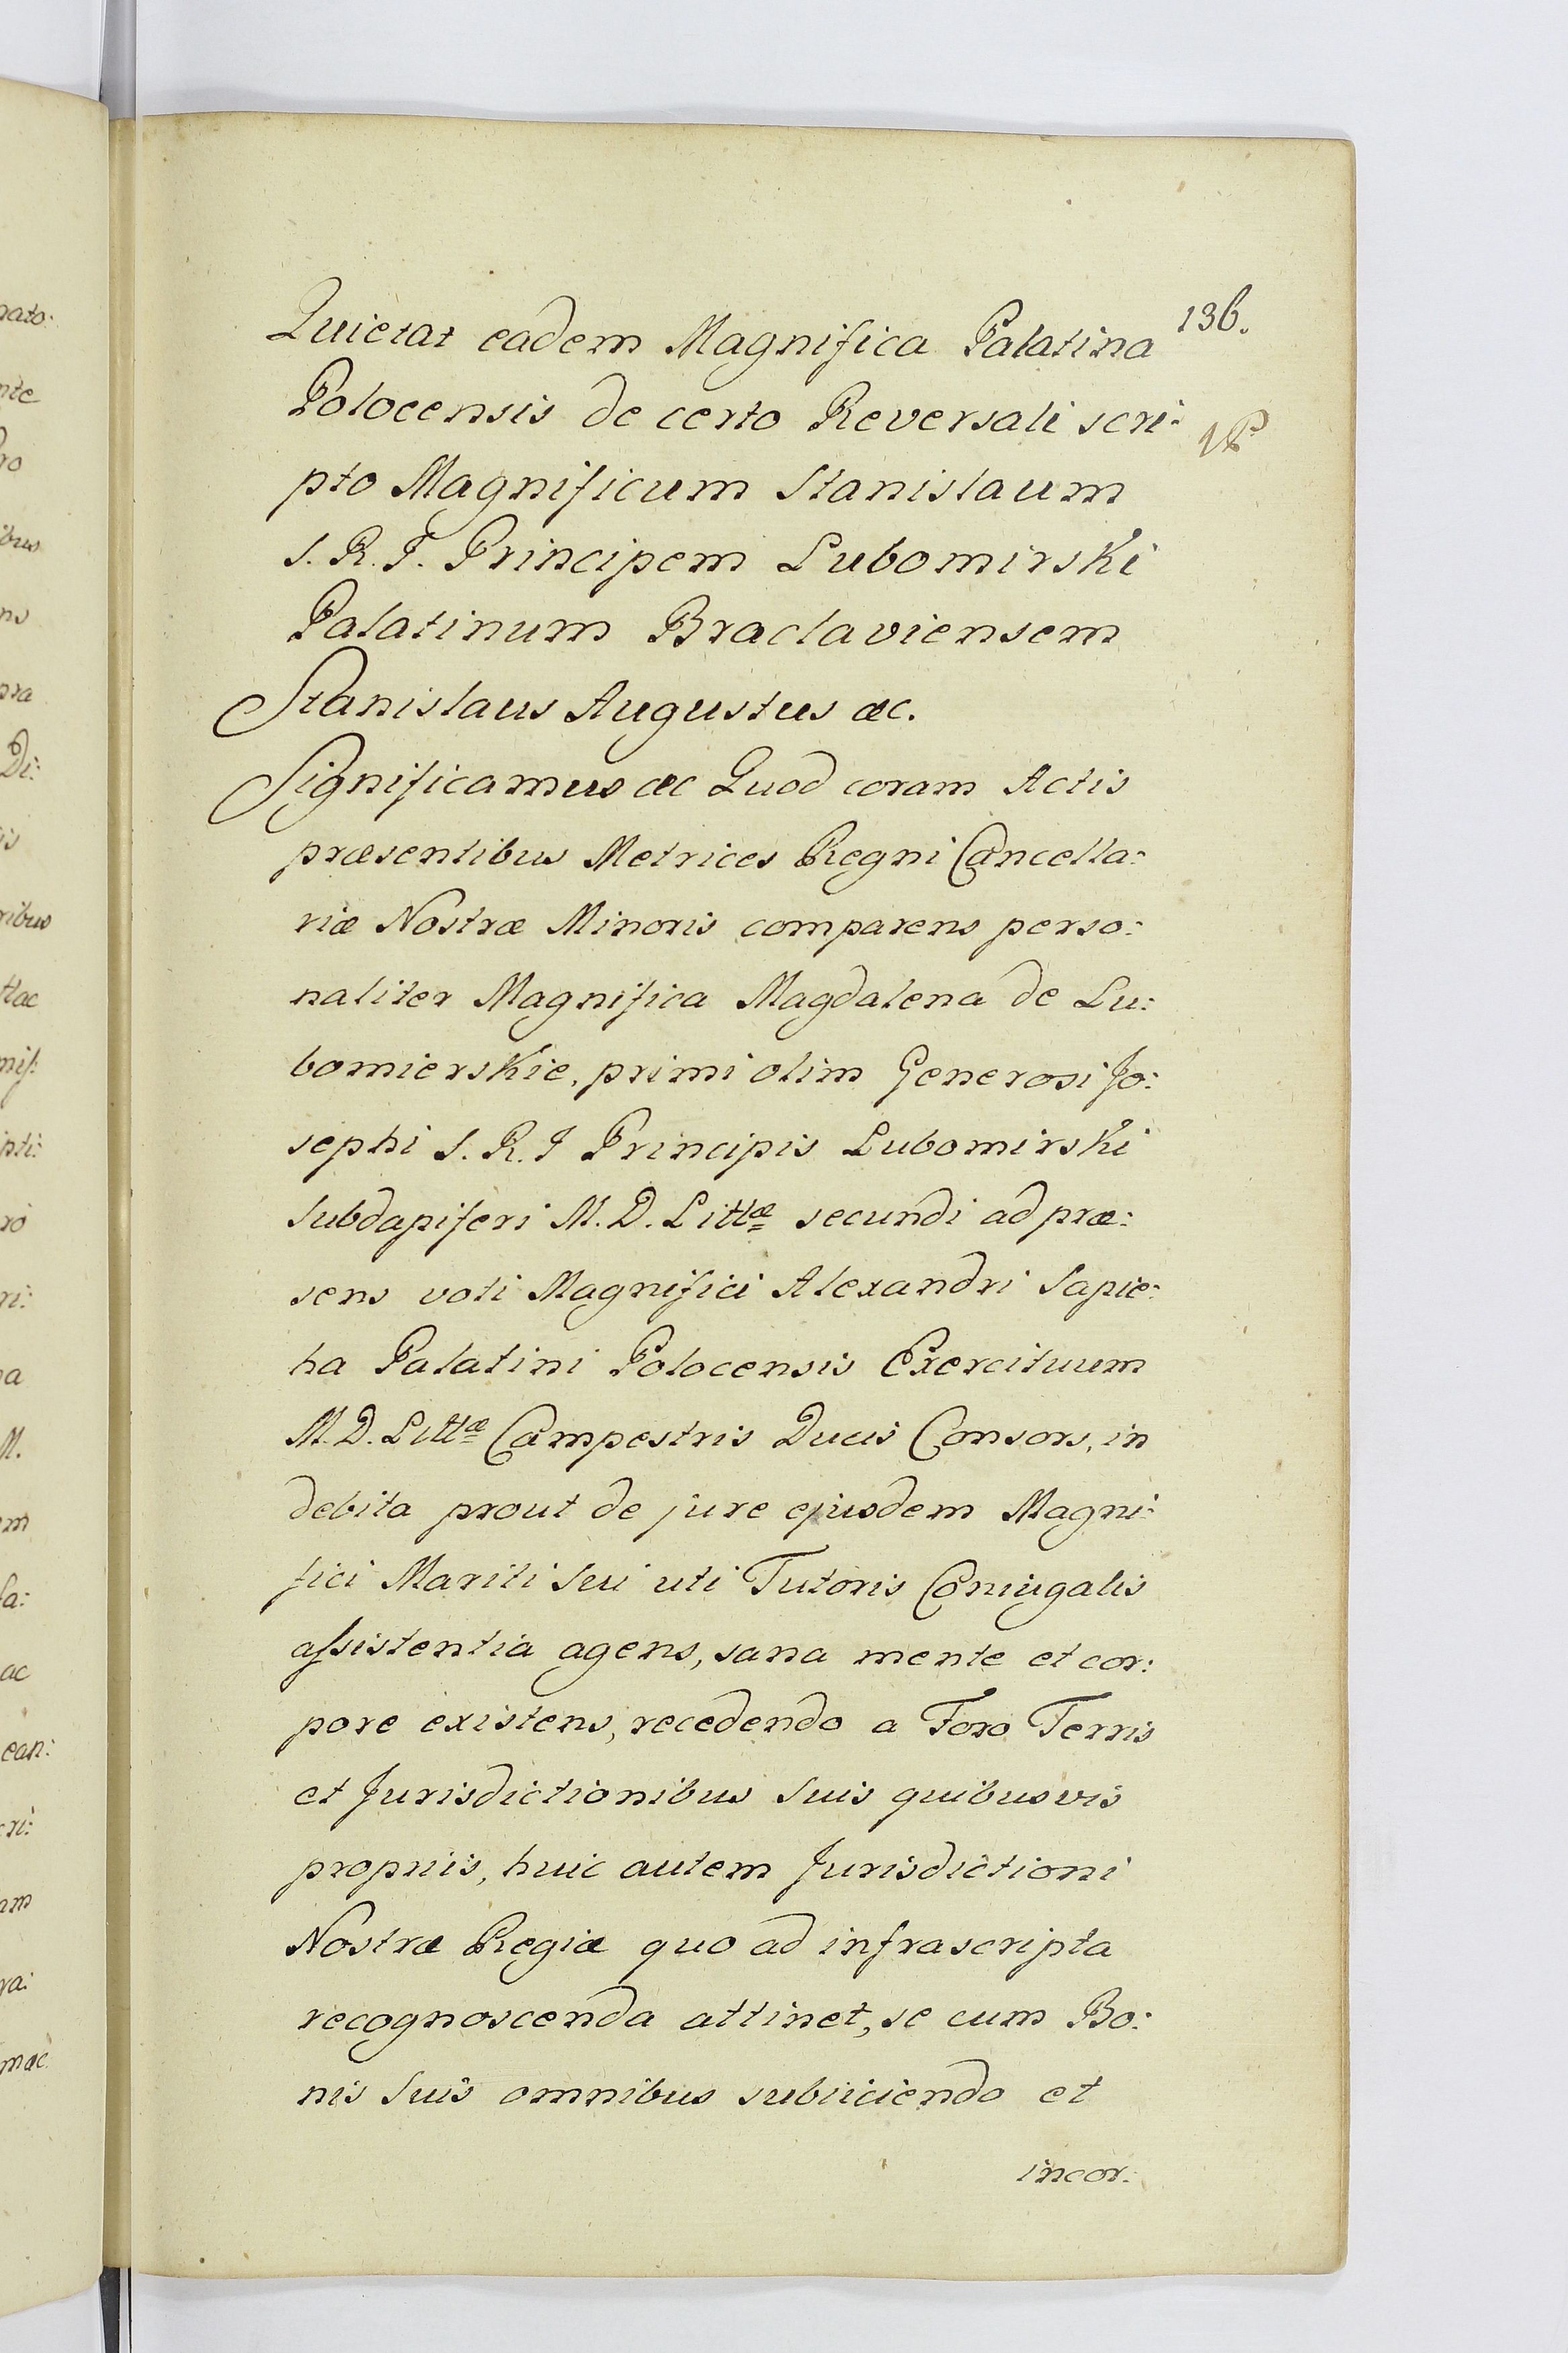 136.
Quietat eadem Magnifica Palatina
Polocensis de certo Reversali scri:
pto Magnificum Stanislaum
S. R. I. Principem Lubomirski
Palatinum Braclaviensem
Stanislaus Augustus &c.
Significamus &c Quod coram Actis
præsentibus Metrices Regni Cancella:
riæ Nostræ Minoris comparens perso:
naliter Magnifica Magdalena de Lu:
bomierskie, primi olim Generosi Jo:
sephi S. R. I Principis Lubomirski
Subdapiferi M. D. Littæ secundi ad præ:
sens voti Magnifici Alexandri Sapie:
ha Palatini Polocensis Exercituum
M. D. Littæ Campestris Ducis Consors, in
debita prout de jure ejusdem Magni:
fici Mariti Sui uti Tutoris Coniugalis
assistentia agens, sana mente et cor:
pore existens, recedendo a Foro Terris
et Jurisdictionibus Suis quibusvis
propriis, huic autem Jurisdictioni
Nostræ Regiæ quo ad infrascripta
recognoscenda attinet, se cum Bo:
nis Suis omnibus subiiciendo et
incor: